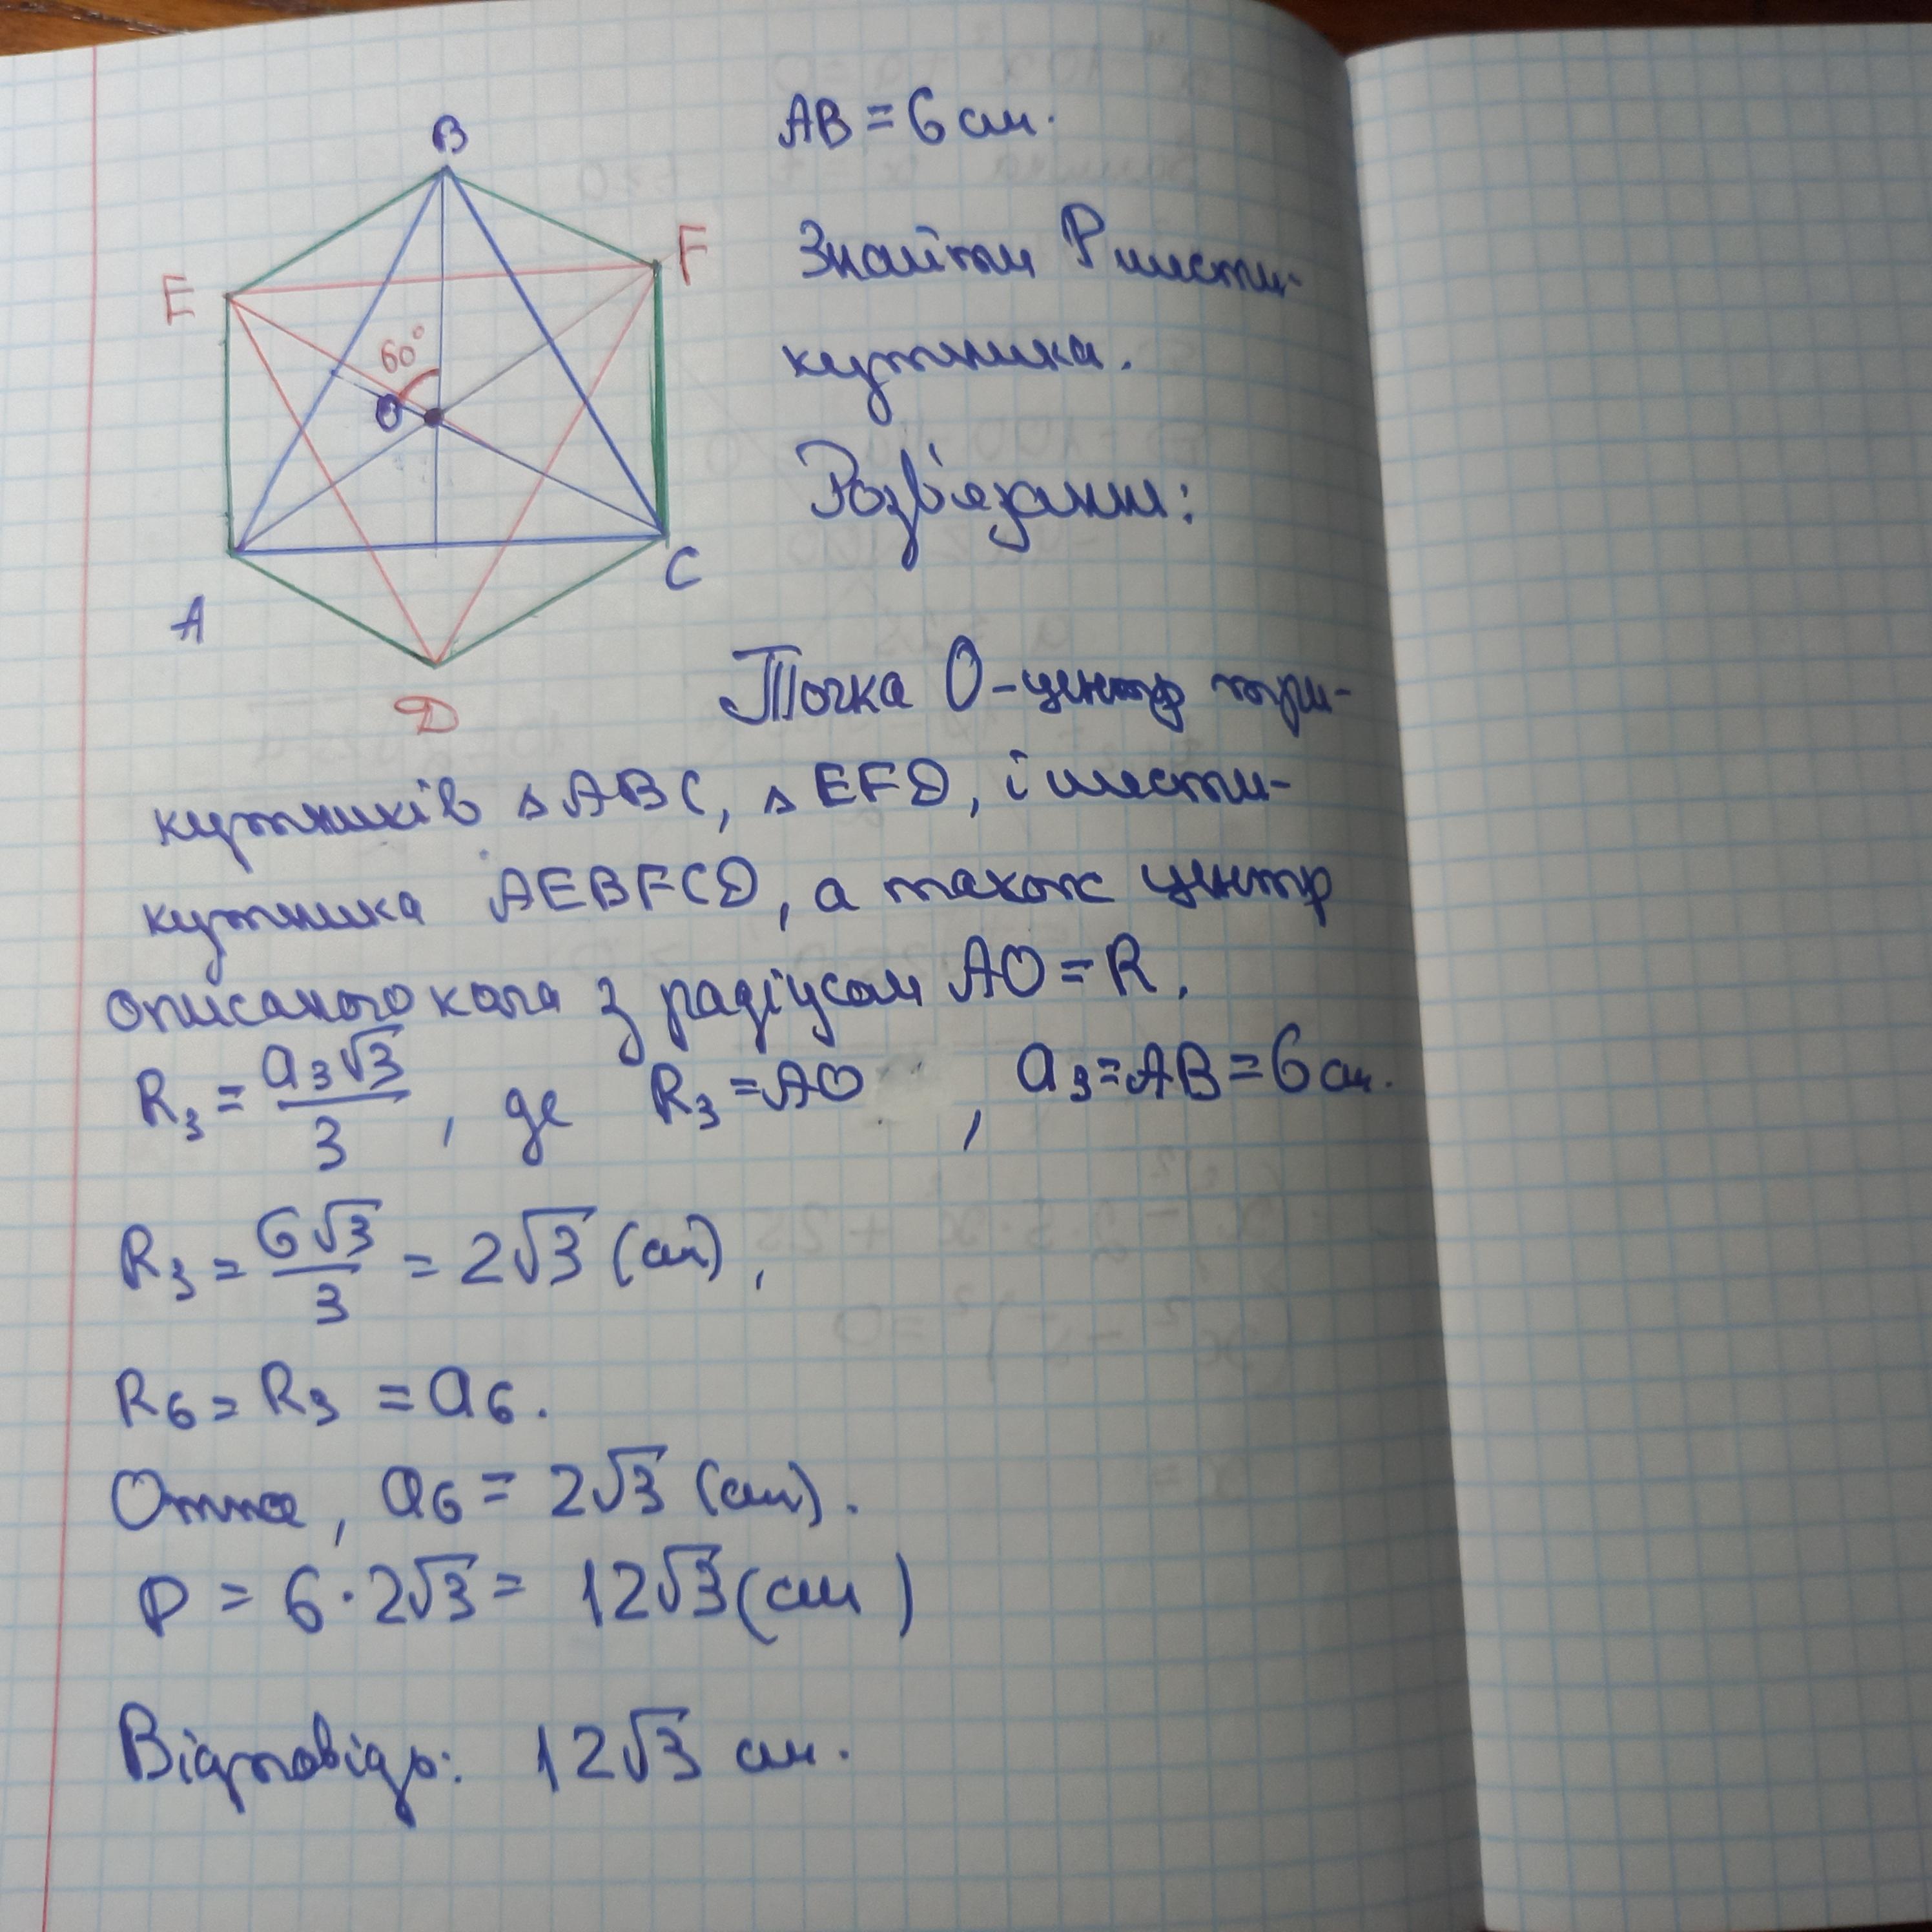 B
AB = 6 см.
F
E
60°
O
C
A
D
Знайти P шести-
кутника.
Розв'язання:
Точка O - центр три-
кутників △ABC, △EFD, і шести-
кутника AEBFCD, а також центр
описаного кола з радіусом AO = R.
R₃ = a₃√3/3, де R₃ = AO, a₃ = AB = 6 см.
R₃ = 6√3/3 = 2√3 (см),
R₆ = R₃ = a₆.
Отже, a₆ = 2√3 (см).
P = 6 · 2√3 = 12√3 (см)
Відповідь: 12√3 см.